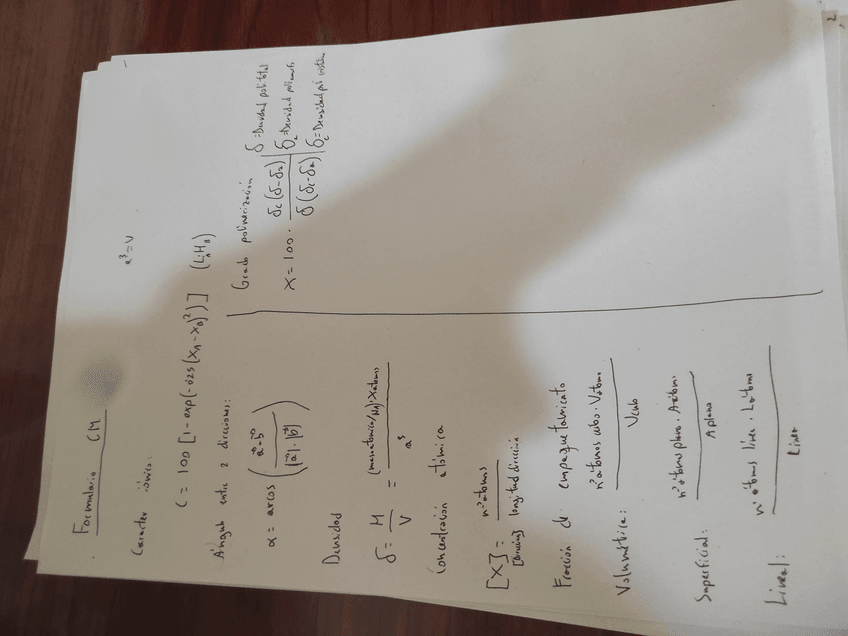 Formulario CM
a³=V
Caracter iónico:
C = 100 [1-exp(-0'25(X_A-X_B)²)] (L_AH_B)
Ángulo entre 2 direcciones:
α = arcos (a⃗·b⃗ / |a⃗|·|b⃗|)
Densidad
δ = M / V = (masa atómica/NA)·Xátomos / a³
Concentración atómica
[X] = nºátomos / longitud dirección
[dirección]
Fracción de empaquetamiento
Volumétrica: nºátomos cubo · Vátomo / Vcubo
Superficial: nº átomos plano · Aátomo / Aplano
Lineal: nº átomos línea · Látomo / Línea
Grado polimerización
X = 100 · δc(δ-δa) / δ(δc-δa)
δ=Densidad pol total
δa=Densidad pol amorfo
δc=Densidad pol
2